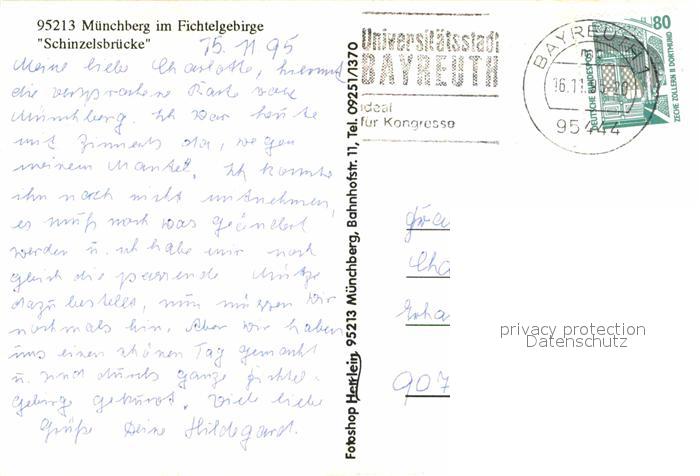 95213 Münchberg im Fichtelgebirge
"Schinzelsbrücke"
15.11 95
Meine liebe Charlotte, hiermit
die versprochene Karte von
Münchberg. Ich war heute
mit Zinnerts da, wegen
meinem Mantel. Ich konnte
ihn noch nicht mitnehmen,
es muß noch was geändert
werden u. ich habe mir noch
gleich die passende Mütze
dazu bestellt, nun müssen wir
nochmals hin. Aber wir haben
uns einen schönen Tag gemacht
u. sind durchs ganze Fichtel-
gebirge gekurvt. Viele liebe
Grüße Deine Hildegard.
Fotoshop Herrlein, 95213 Münchberg, Bahnhofstr. 11, Tel. 09251/1370
Universitätsstadt
BAYREUTH
ideal
für Kongresse
BAYREUTH
16.11.95-20
95444
80
DEUTSCHE BUNDESPOST
ZECHE ZOLLERN II DORTMUND
Frau
Cha
907
privacy protection
Datenschutz